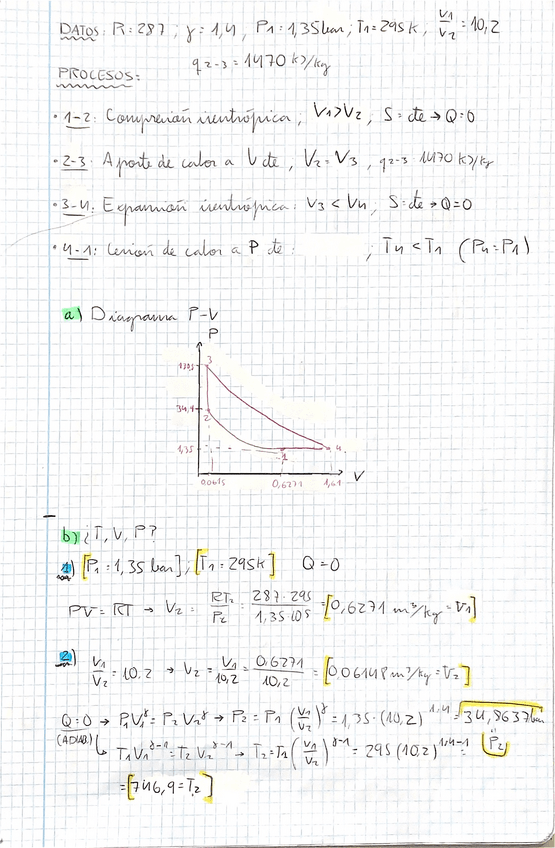 DATOS: R=287 ; γ=1,4, P1=1,35bar; T1=295K, V1/V2=10,2
q2-3=1470 kJ/kg
PROCESOS:
· 1-2: Compresión isentrópica, V1>V2, S=cte→Q=0
· 2-3: Aporte de calor a V cte, V2=V3, q2-3 1470 kJ/kg
· 3-4: Expansión isentrópica: V3<V4, S=cte→Q=0
· 4-1: Cesión de calor a P cte: ; T4<T1 (P4=P1)
a) Diagrama P-V
P
3
34,9
2
1,35
1
4
0,0615 0,6271 1,61 V
b) ¿T, V, P?
1) [P1=1,35 bar], [T1=295K] Q=0
PV=RT → V2 = RT2/P2 = 287·295/1,35·105 = [0,6271 m3/kg=V1]
2) V1/V2=10.2 → V2 = V1/10,2 = 0,6271/10,2 = [0,06148 m3/kg=V2]
Q=0 → P1V1^γ = P2V2^γ → P2 = P1 (V1/V2)^γ = 1,35·(10,2)^1,4 = 34,8637bar
(ADIAB.) T1V1^γ-1 = T2V2^γ-1 → T2=T1(V1/V2)^γ-1 = 295(10,2)^1,4-1= P2
=[746,9=T2]